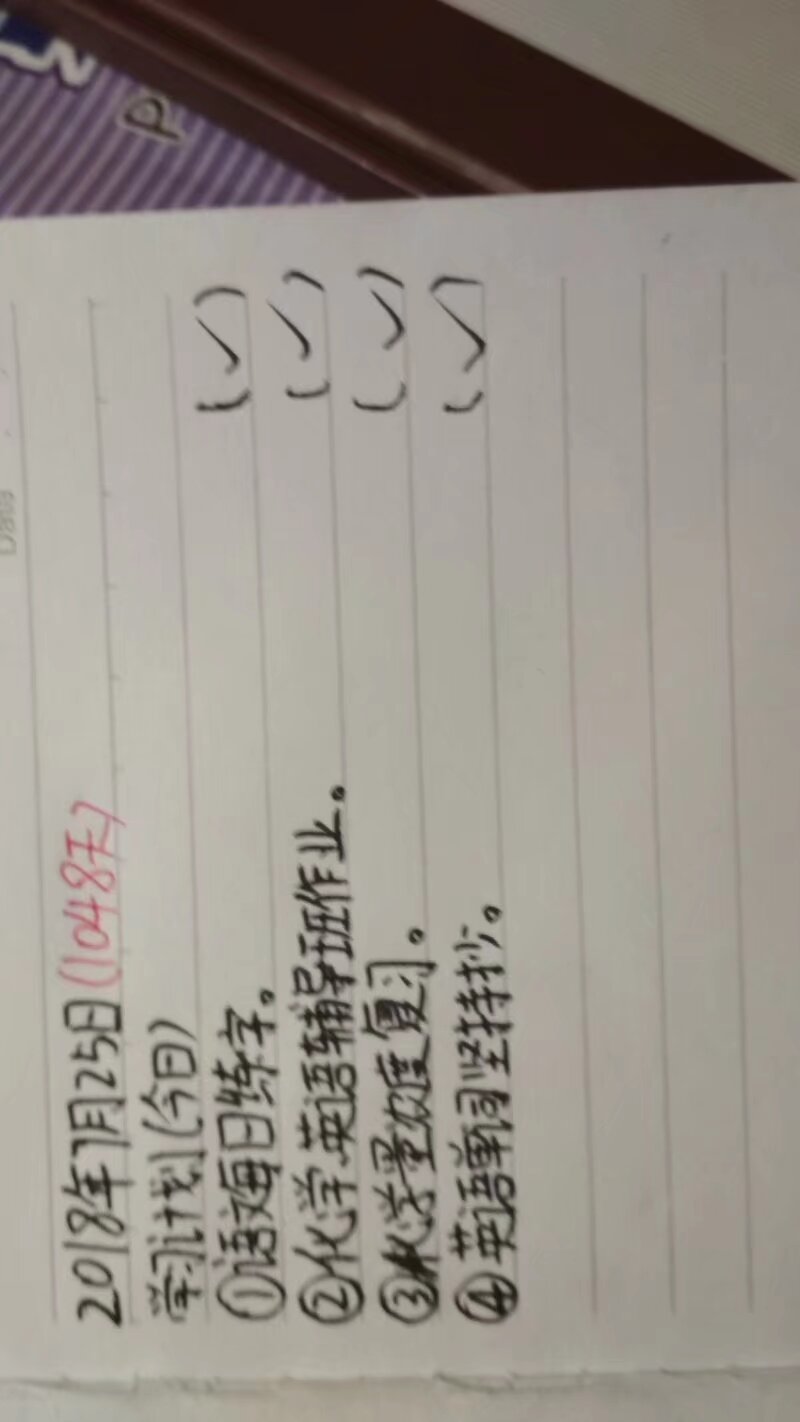 2018年7月25日(1048天)
学习计划(今日)
①语文每日练字。 (✓)
②化学英语辅导班作业。 (✓)
③化学重难度复习。 (✓)
④英语单词坚持抄。 (✓)